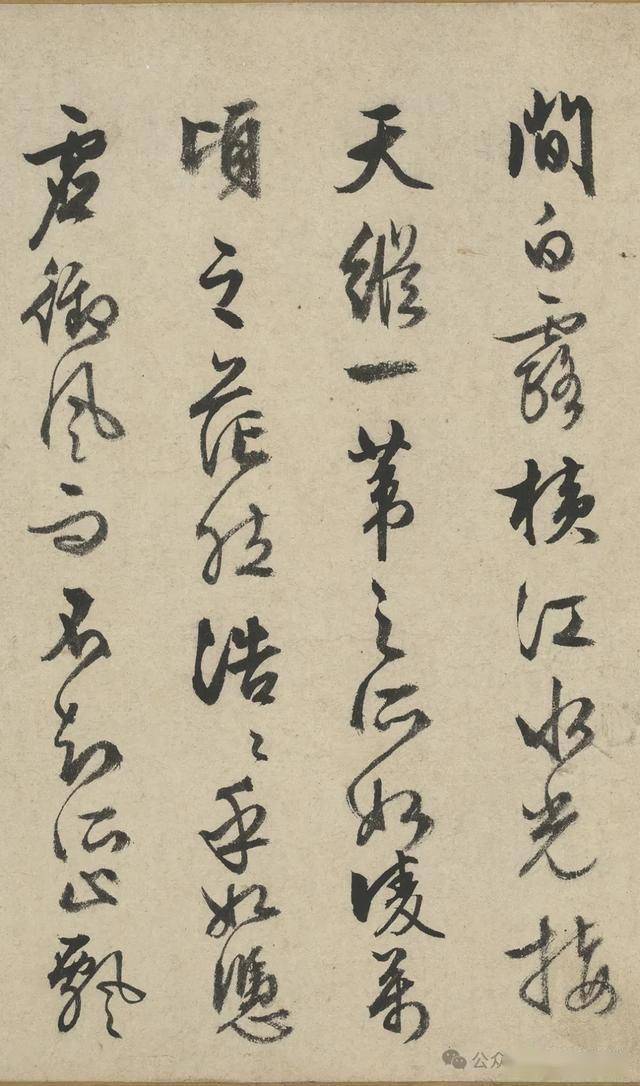 間白露橫江水光接
天縱一葦之所如凌萬
頃之茫然浩〻乎如馮
虛御風而不知所止飄
公众